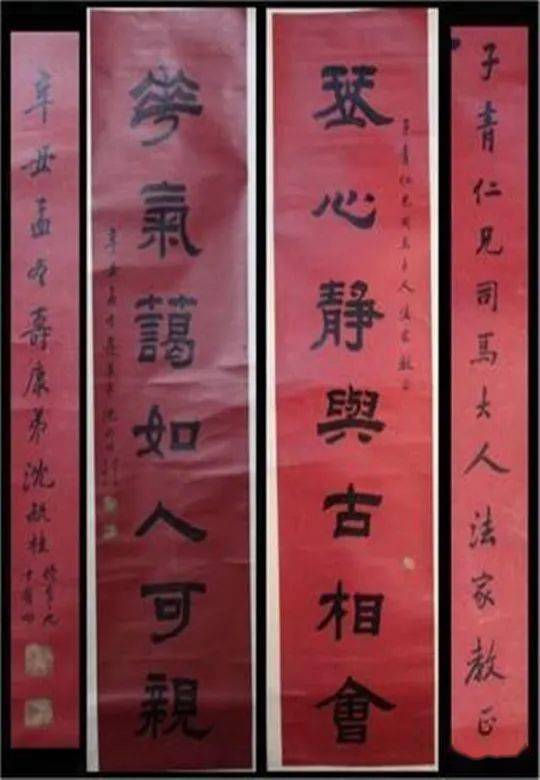 子青仁兄司馬大人法家教正
子青仁兄司馬大人法家教正
琹心靜與古相會
華氣藹如人可親
辛丑孟冬壽康弟沈毓桂
辛丑孟冬壽康弟沈毓桂
時年九
十有四